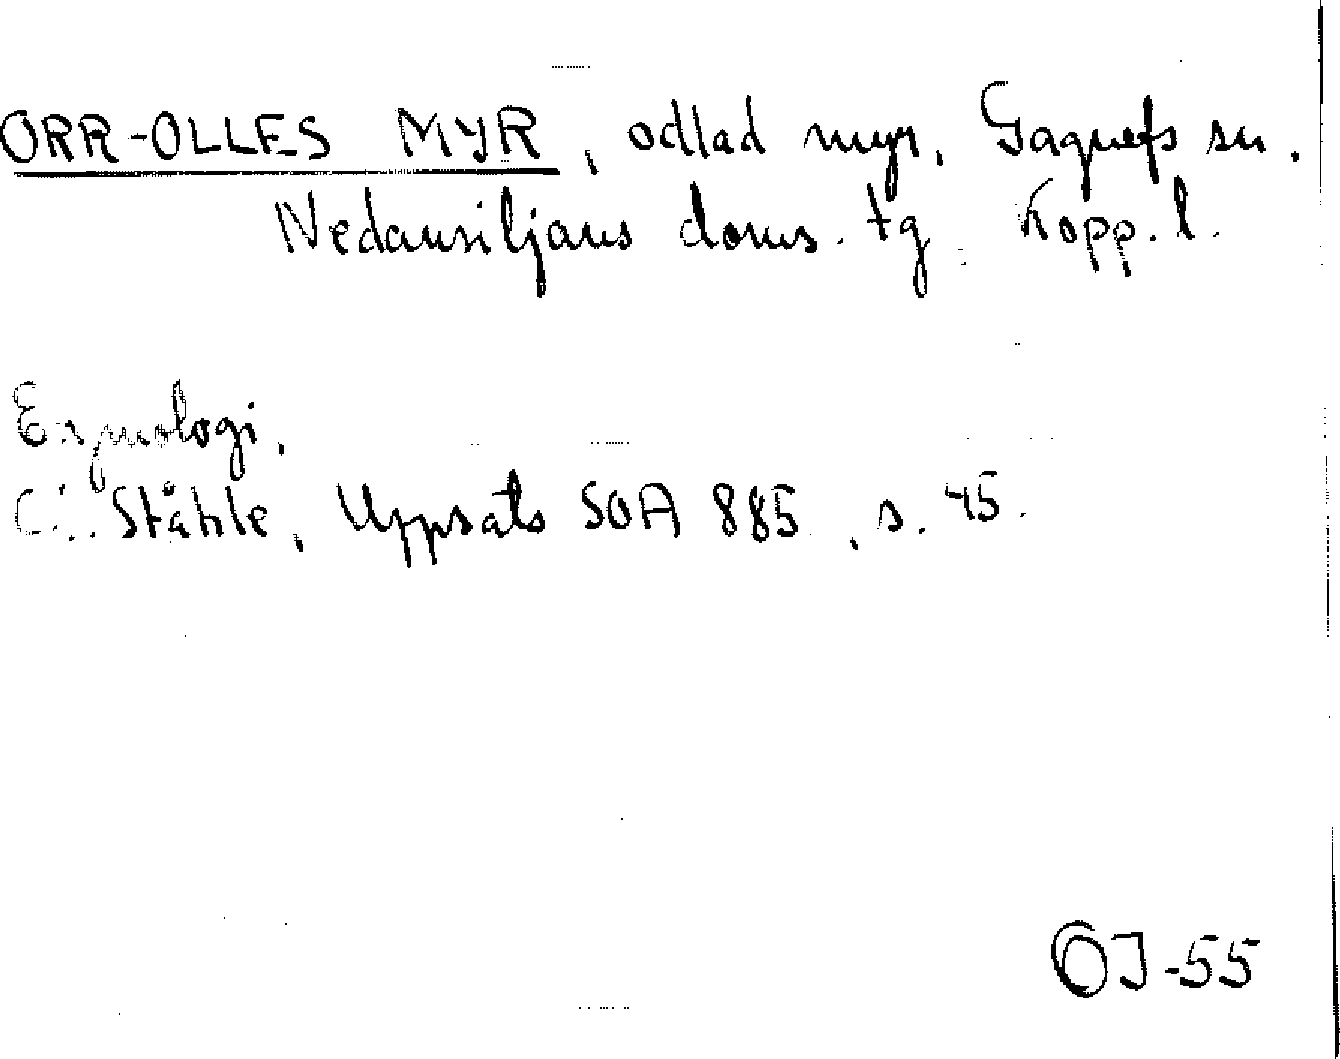 ORR-OLLES MYR, odlad myr. Gagnefs sn.
Nedansiljans doms. tg. Kopp. l.
Etymologi.
C.I. Ståhle, Uppsats SOA 885, s. 45.
OJ-55